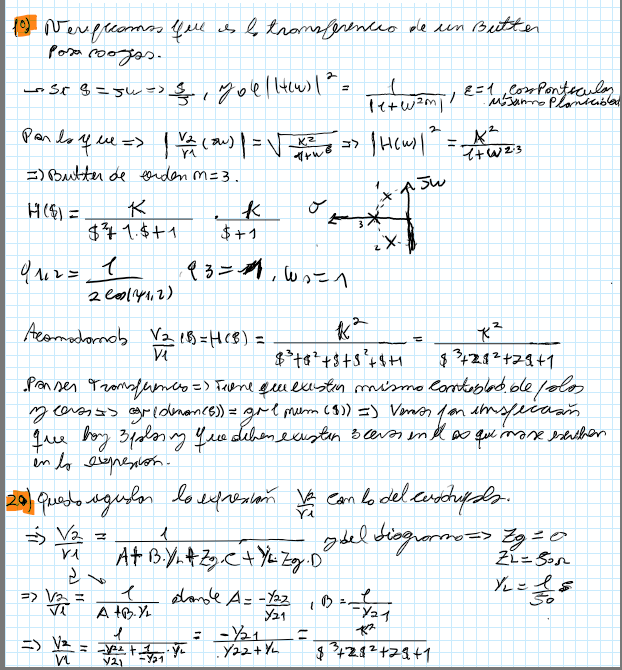 1º) Verificamos que es la transferencia de un Butter
para rangos.
→ Si $ = Jw => $/J, y de |H(w)|² = 1/|1+w^2m|, ε=1, 
Por lo que => |V2/V1 (Jw)| = √(K²/(1+w⁶)) => |H(w)|² = K²/(1+w^2.3)
=> Butter de orden m=3.
H($) = K/($²+1.$+1) . K/($+1)
σ Jw 1 2 3
φ1,2 = 1/(2 cos(ψ1,2)) φ3 = 1, w0 = 1
Acomodamos V2/V1 ($)=H($) = K²/($³+$²+$+$²+$+1) = K²/($³+2$²+2$+1)
.Por ser Transferencia => Tiene que existir misma cantidad de polos
y ceros => gr(denom($)) = gr(num($)) => Vemos por inspección
que hay 3 polos y que deben existir 3 ceros en el ∞ que no se escriben
en la expresión.
2º) Puedo igualar la expresión V2/V1 con la del cuadripolo.
=> V2/V1 = 1/(A+B.YL+Zg.C+YL Zg.D) y del diagrama => Zg = 0
ZL = 50Ω
YL = 1/50 S
=> V2/V1 = 1/(A+B.YL) donde A = -Y22/Y21, B = 1/-Y21
=> V2/V1 = 1/(-Y22/Y21 + 1/-Y21 . YL) = -Y21/(Y22+YL) = K²/($³+2$²+2$+1)